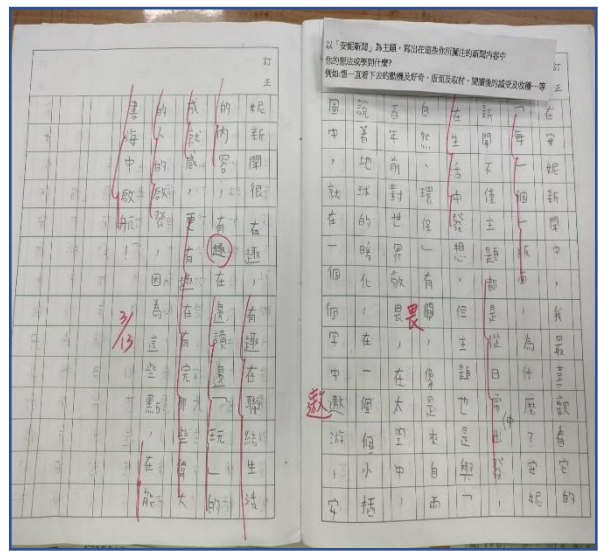 以「安妮新聞」為主題，寫出在這些你所關注的新聞內容中
你的想法或學到什麼?
例如:想一直看下去的動機及好奇、版面及取材、閱讀後的感受及收穫…等
訂正
在安妮新聞中，我最喜歡看它的
「每一個」版面，為什麼？安妮
新聞不僅主題都是從日常中出發，
在生活中發想，但主題也是與「
自然、環保」有關，像是來自兩
百年前對世界敬畏，在太空中，
畏
說著地球的暗化，在一個個小插
圖中，就在一個個字中遨游，安
遨
訂正
妮新聞很有趣，有趣在聯結生活
的內容，有趣在邊讀邊「玩」的
成就感，更有趣在有完那些偉大
的人的啟發，因為這些點，在能
書海中啟航！
3/13